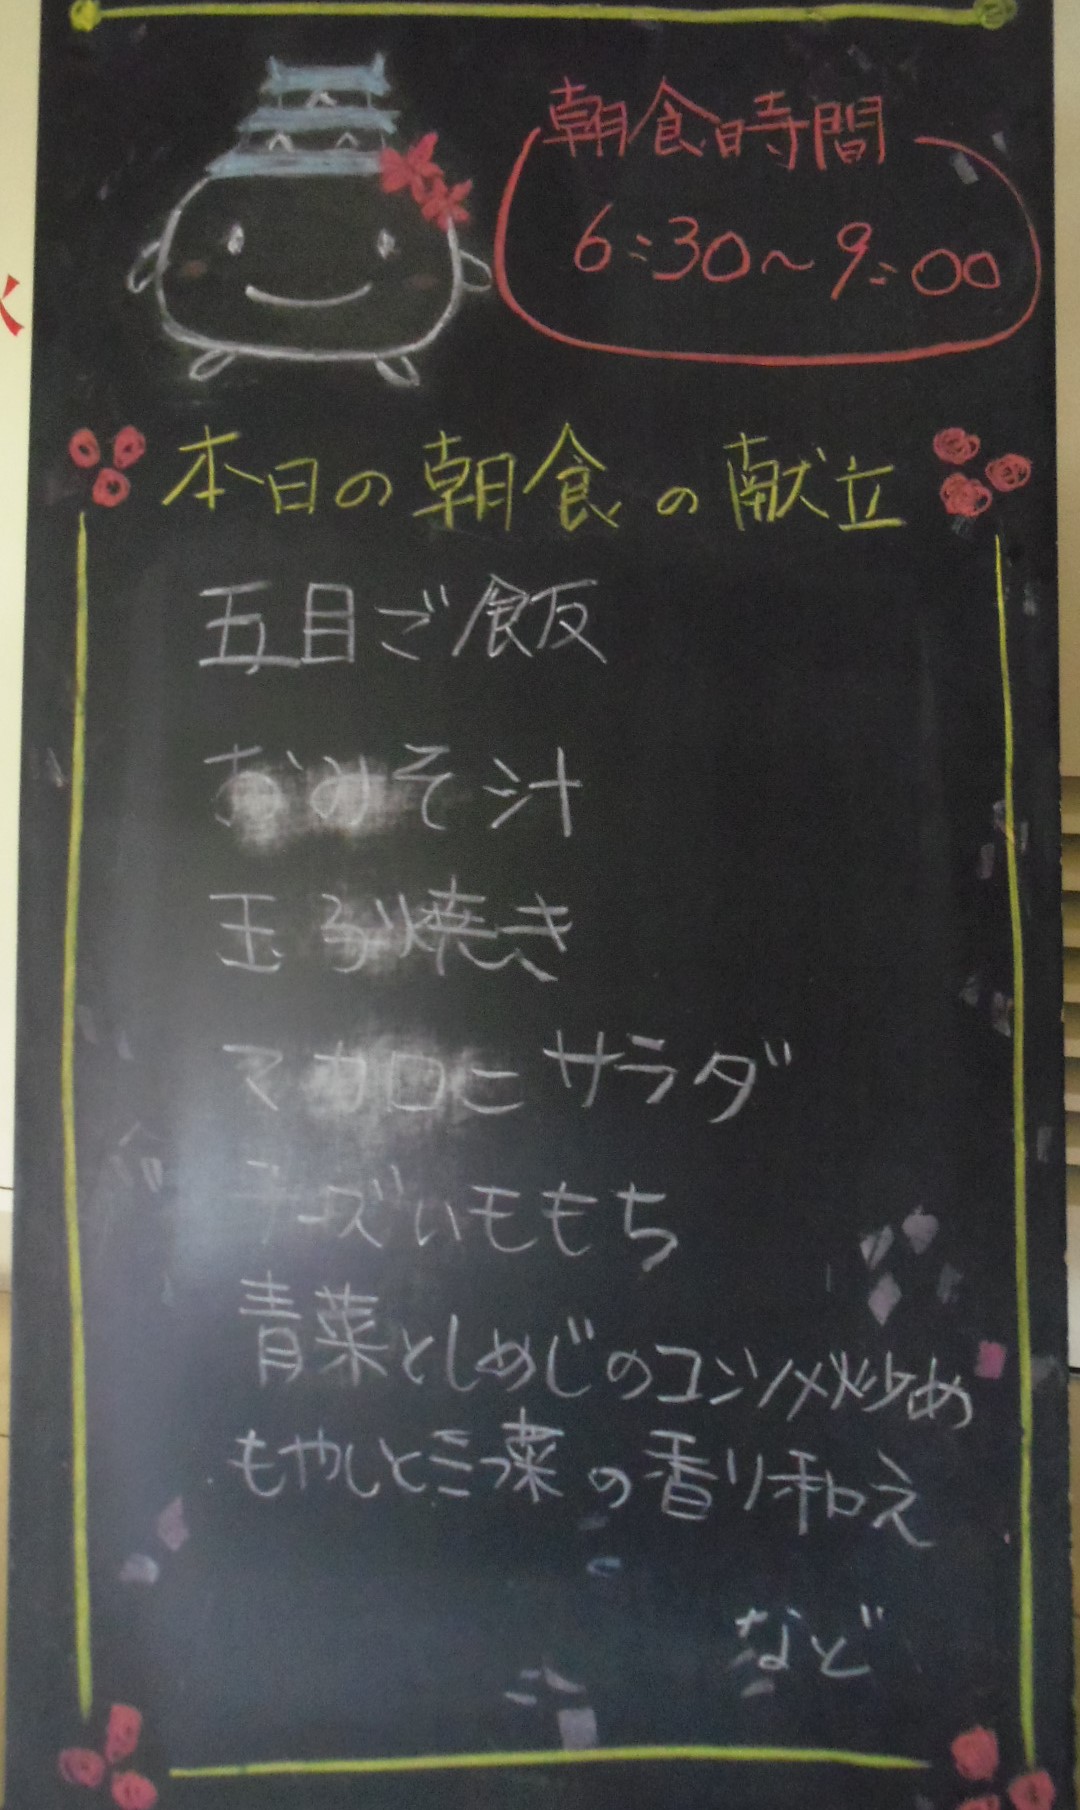 朝食時間
6:30～9:00
本日の朝食の献立
五目ご飯
おみそ汁
玉子焼き
マカロニサラダ
チーズいももち
青菜としめじのコンソメ炒め
もやしと三つ菜の香り和え
など